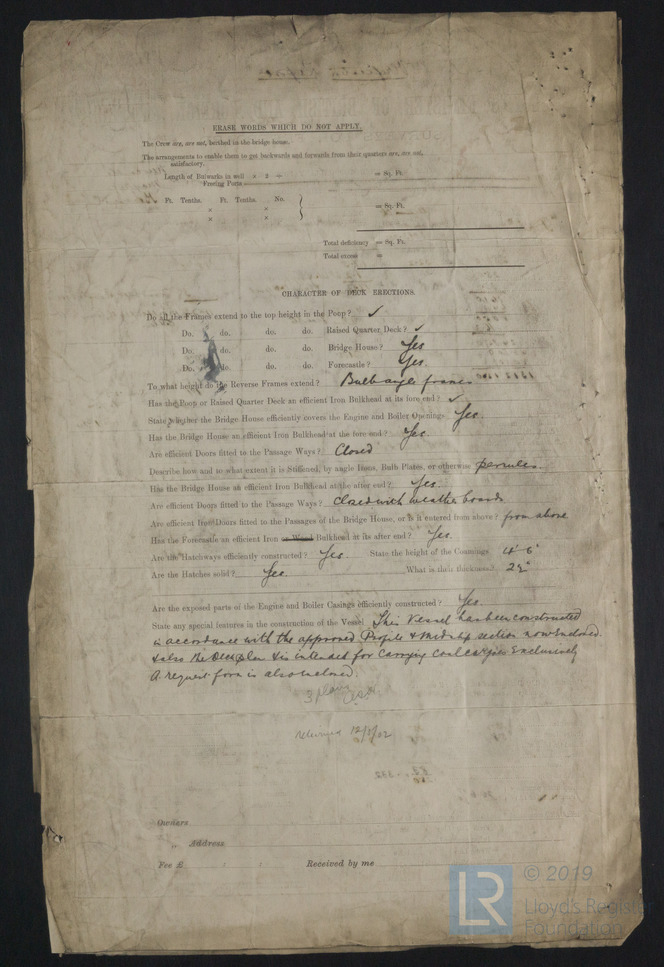 ERASE WORDS WHICH DO NOT APPLY.
The Crew are, are not, berthed in the bridge house.
The arrangements to enable them to get backwards and forwards from their quarters are, are not,
satisfactory.
Length of Bulwarks in well × 2 ÷ = Sq. Ft.
Freeing Ports
Ft. Tenths. Ft. Tenths. No.
× × } = Sq. Ft.
× ×
Total deficiency = Sq. Ft.
Total excess =
CHARACTER OF DECK ERECTIONS.
Do all the Frames extend to the top height in the Poop? ✓
Do. do. do. do. Raised Quarter Deck? ✓
Do. do. do. do. Bridge House? Yes
Do. do. do. do. Forecastle? Yes.
To what height do the Reverse Frames extend? Bulb angle frames
Has the Poop or Raised Quarter Deck an efficient Iron Bulkhead at its fore end? ✓
State whether the Bridge House efficiently covers the Engine and Boiler Openings Yes.
Has the Bridge House an efficient Iron Bulkhead at the fore end? Yes.
Are efficient Doors fitted to the Passage Ways? Closed
Describe how and to what extent it is Stiffened, by angle Irons, Bulb Plates, or otherwise per rules
Has the Bridge House an efficient Iron Bulkhead at the after end? Yes.
Are efficient Doors fitted to the Passage Ways? Closed with weather boards
Are efficient Iron Doors fitted to the Passages of the Bridge House, or is it entered from above? from above
Has the Forecastle an efficient Iron or Wood Bulkhead at its after end? Yes.
Are the Hatchways efficiently constructed? Yes. State the height of the Coamings 4'-6"
Are the Hatches solid? Yes. What is their thickness? 2½"
Are the exposed parts of the Engine and Boiler Casings efficiently constructed? Yes.
State any special features in the construction of the Vessel This Vessel has been constructed
in accordance with the approved Profile & midship section now Enclosed.
& also the Deck plan & is intended for Carrying Coal cargoes Exclusively
A request form is also enclosed.
3 plans
returned 12/5/02
Owners
„ Address
Fee £ : : Received by me
LR
© 2019
Lloyd's Register
Foundation